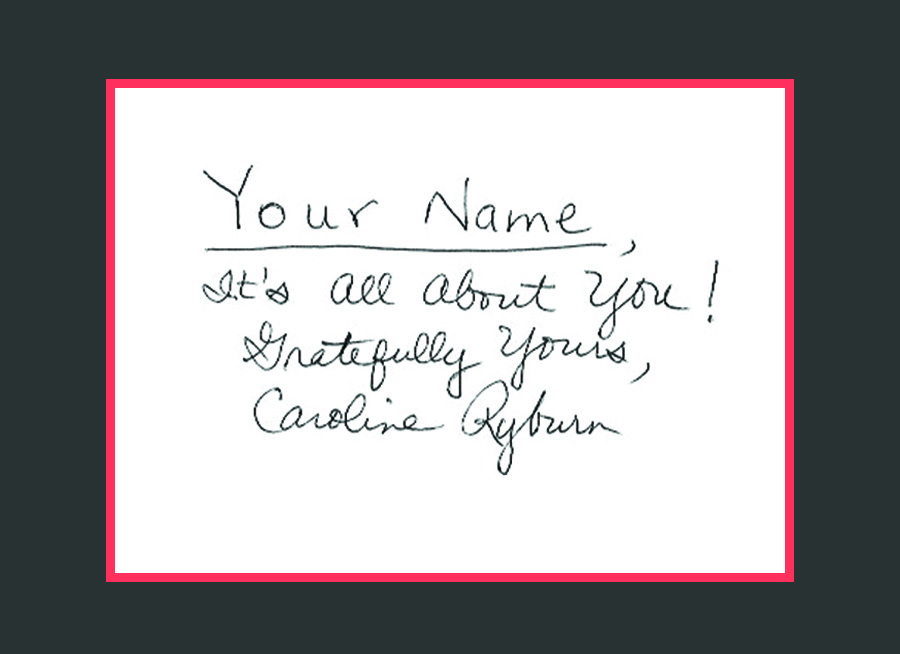 Your Name,
It's all about You!
Gratefully Yours,
Caroline Ryburn